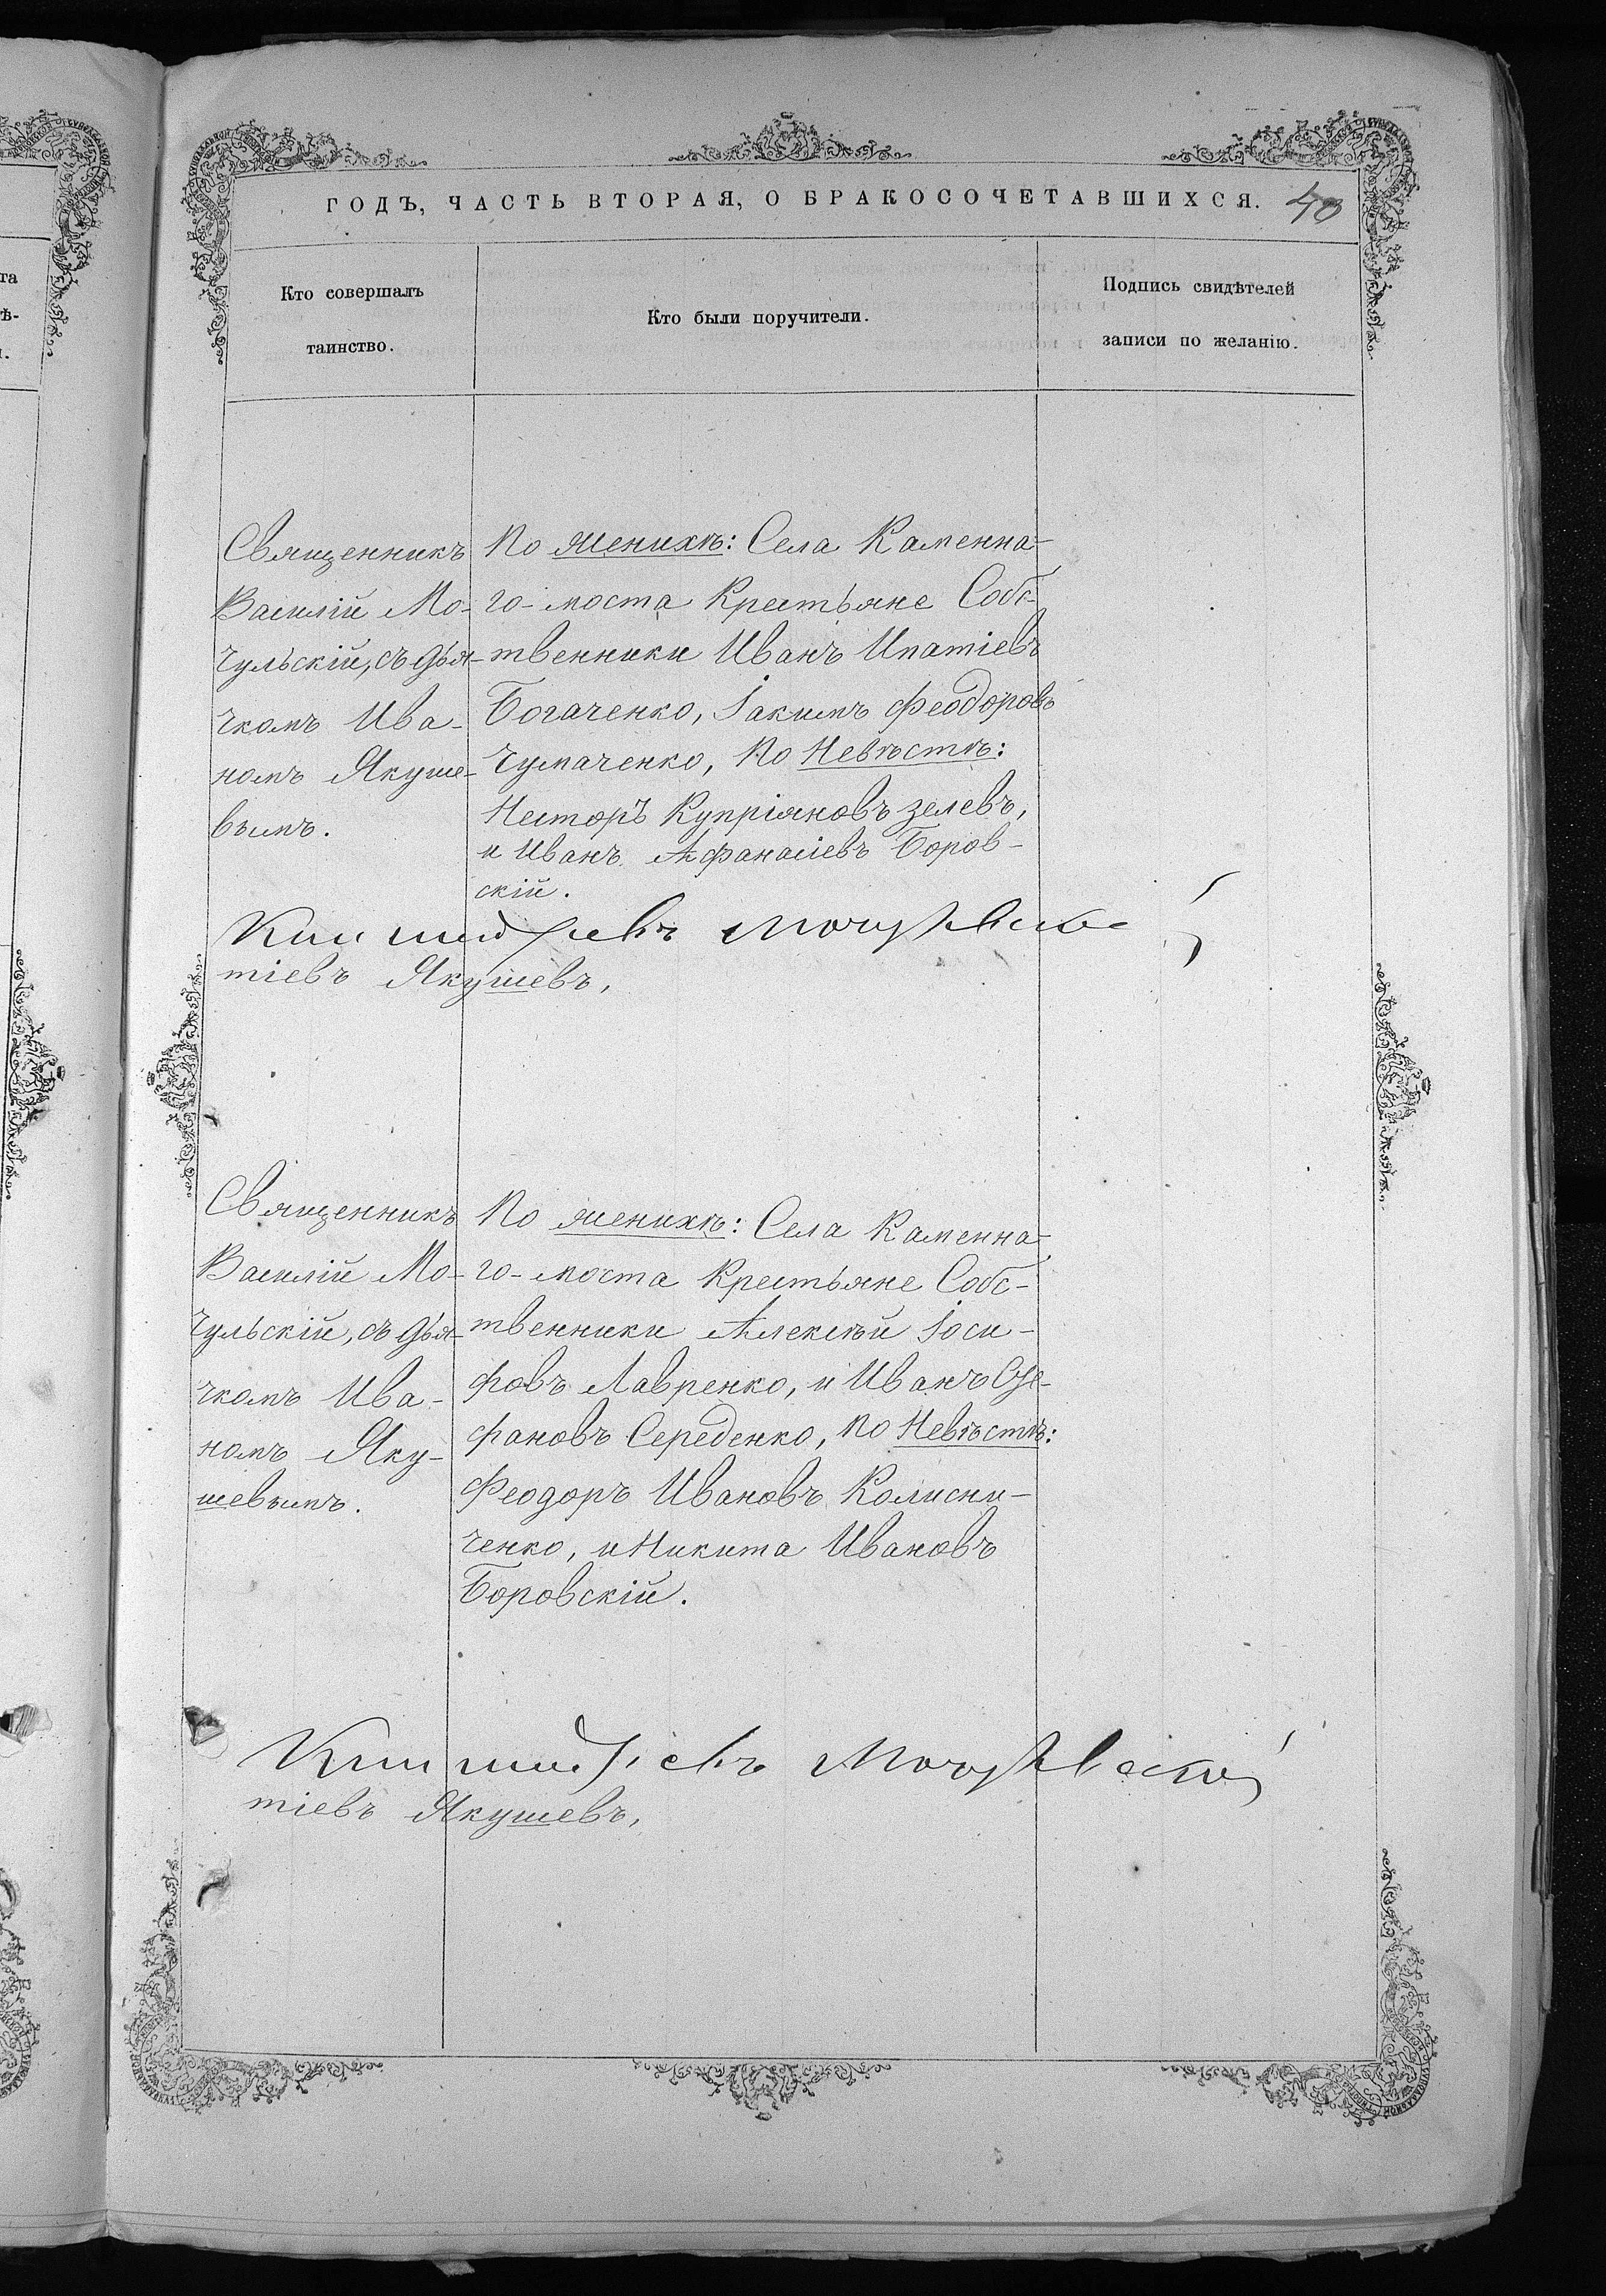 ГОДЪ, ЧАСТЬ ВТОРАЯ, О БРАКОСОЧЕТАВШИХСЯ. 40
Кто совершалъ
таинство.
Кто были поручители.
Подпись свидѣтелей
записи по желанію.
Священникъ
Василій Мо-
чульскій, съ дья-
чкомъ Ива-
номъ Якуше-
вымъ.
По женихѣ: Села Каменна-
го-моста Крестьяне Собс-
твенники Иванъ Ипатіевъ
Богаченко, Іакимъ Феодоровъ
Чумаченко, По Невѣстѣ:
Несторъ Купріяновъ Зелевъ,
и Иванъ Афанасіевъ Боров-
скій.
тіевъ Якушевъ,
Священникъ
Василій Мо-
чульскій, съ дья-
чкомъ Ива-
номъ Яку-
шевымъ.
По женихѣ: Села Каменна-
го-моста Крестьяне Собс-
твенники Алексѣй Іоси-
фовъ Лавренко, и Иванъ Сте-
фановъ Середенко, По Невѣстѣ:
Феодоръ Ивановъ Колисни-
ченко, и Никита Ивановъ
Боровскій.
тіевъ Якушевъ,